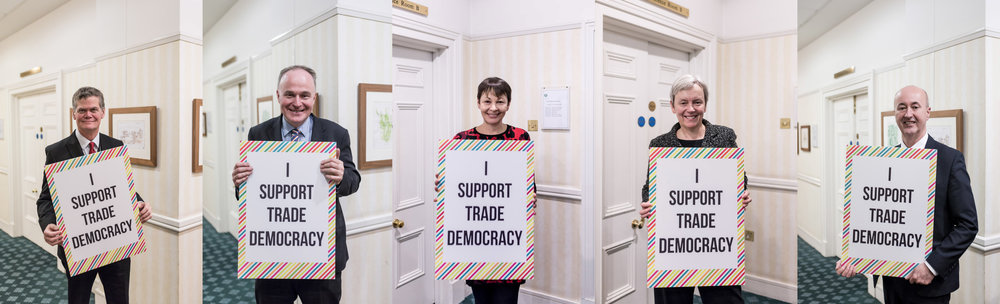 I
SUPPORT
TRADE
DEMOCRACY
I
SUPPORT
TRADE
DEMOCRACY
Room B
I
SUPPORT
TRADE
DEMOCRACY
Room B
I
SUPPORT
TRADE
DEMOCRACY
I
SUPPORT
TRADE
DEMOCRACY